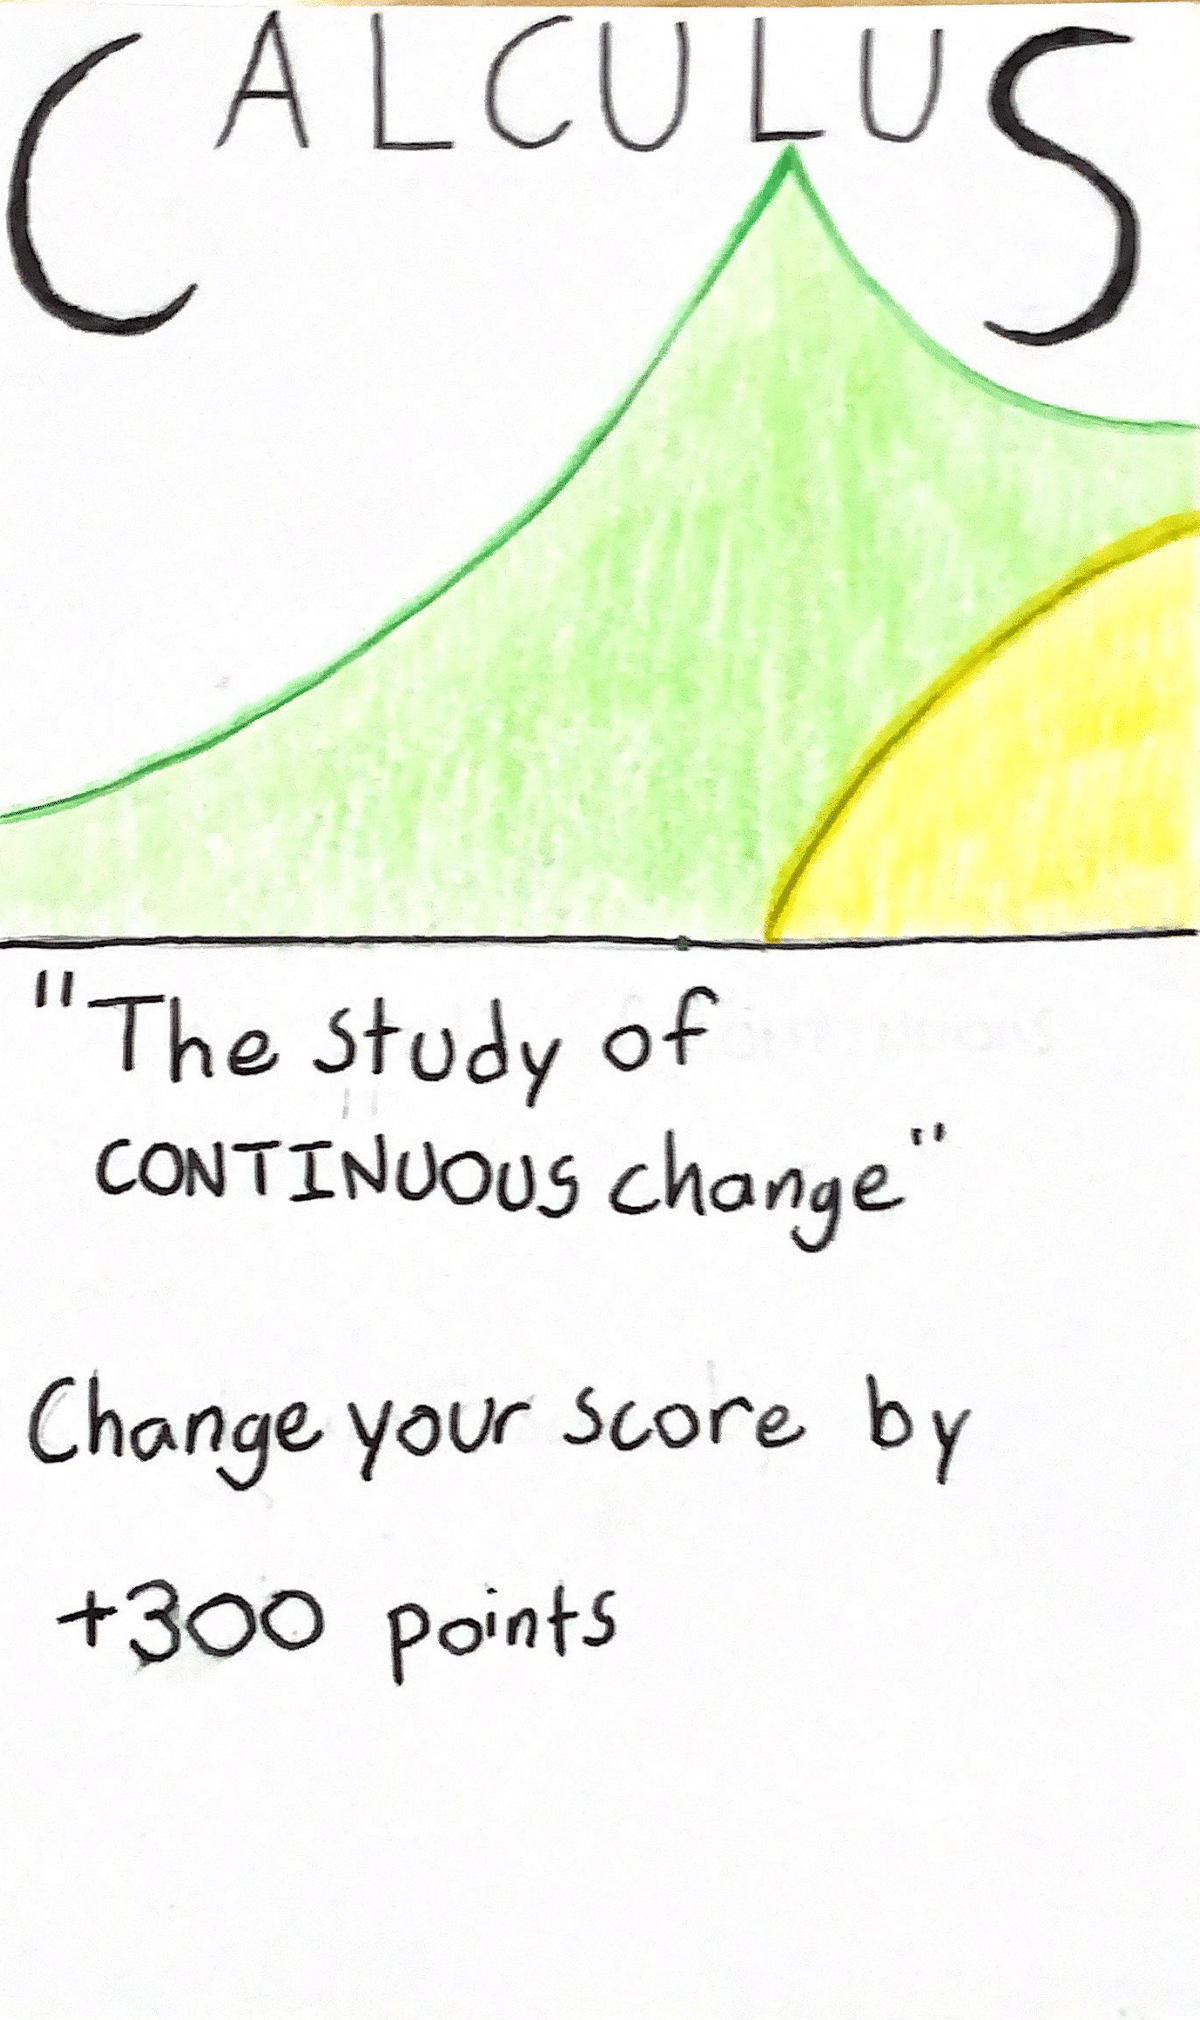 CALCULUS
"The study of
CONTINUOUS change"
Change your score by
+300 points